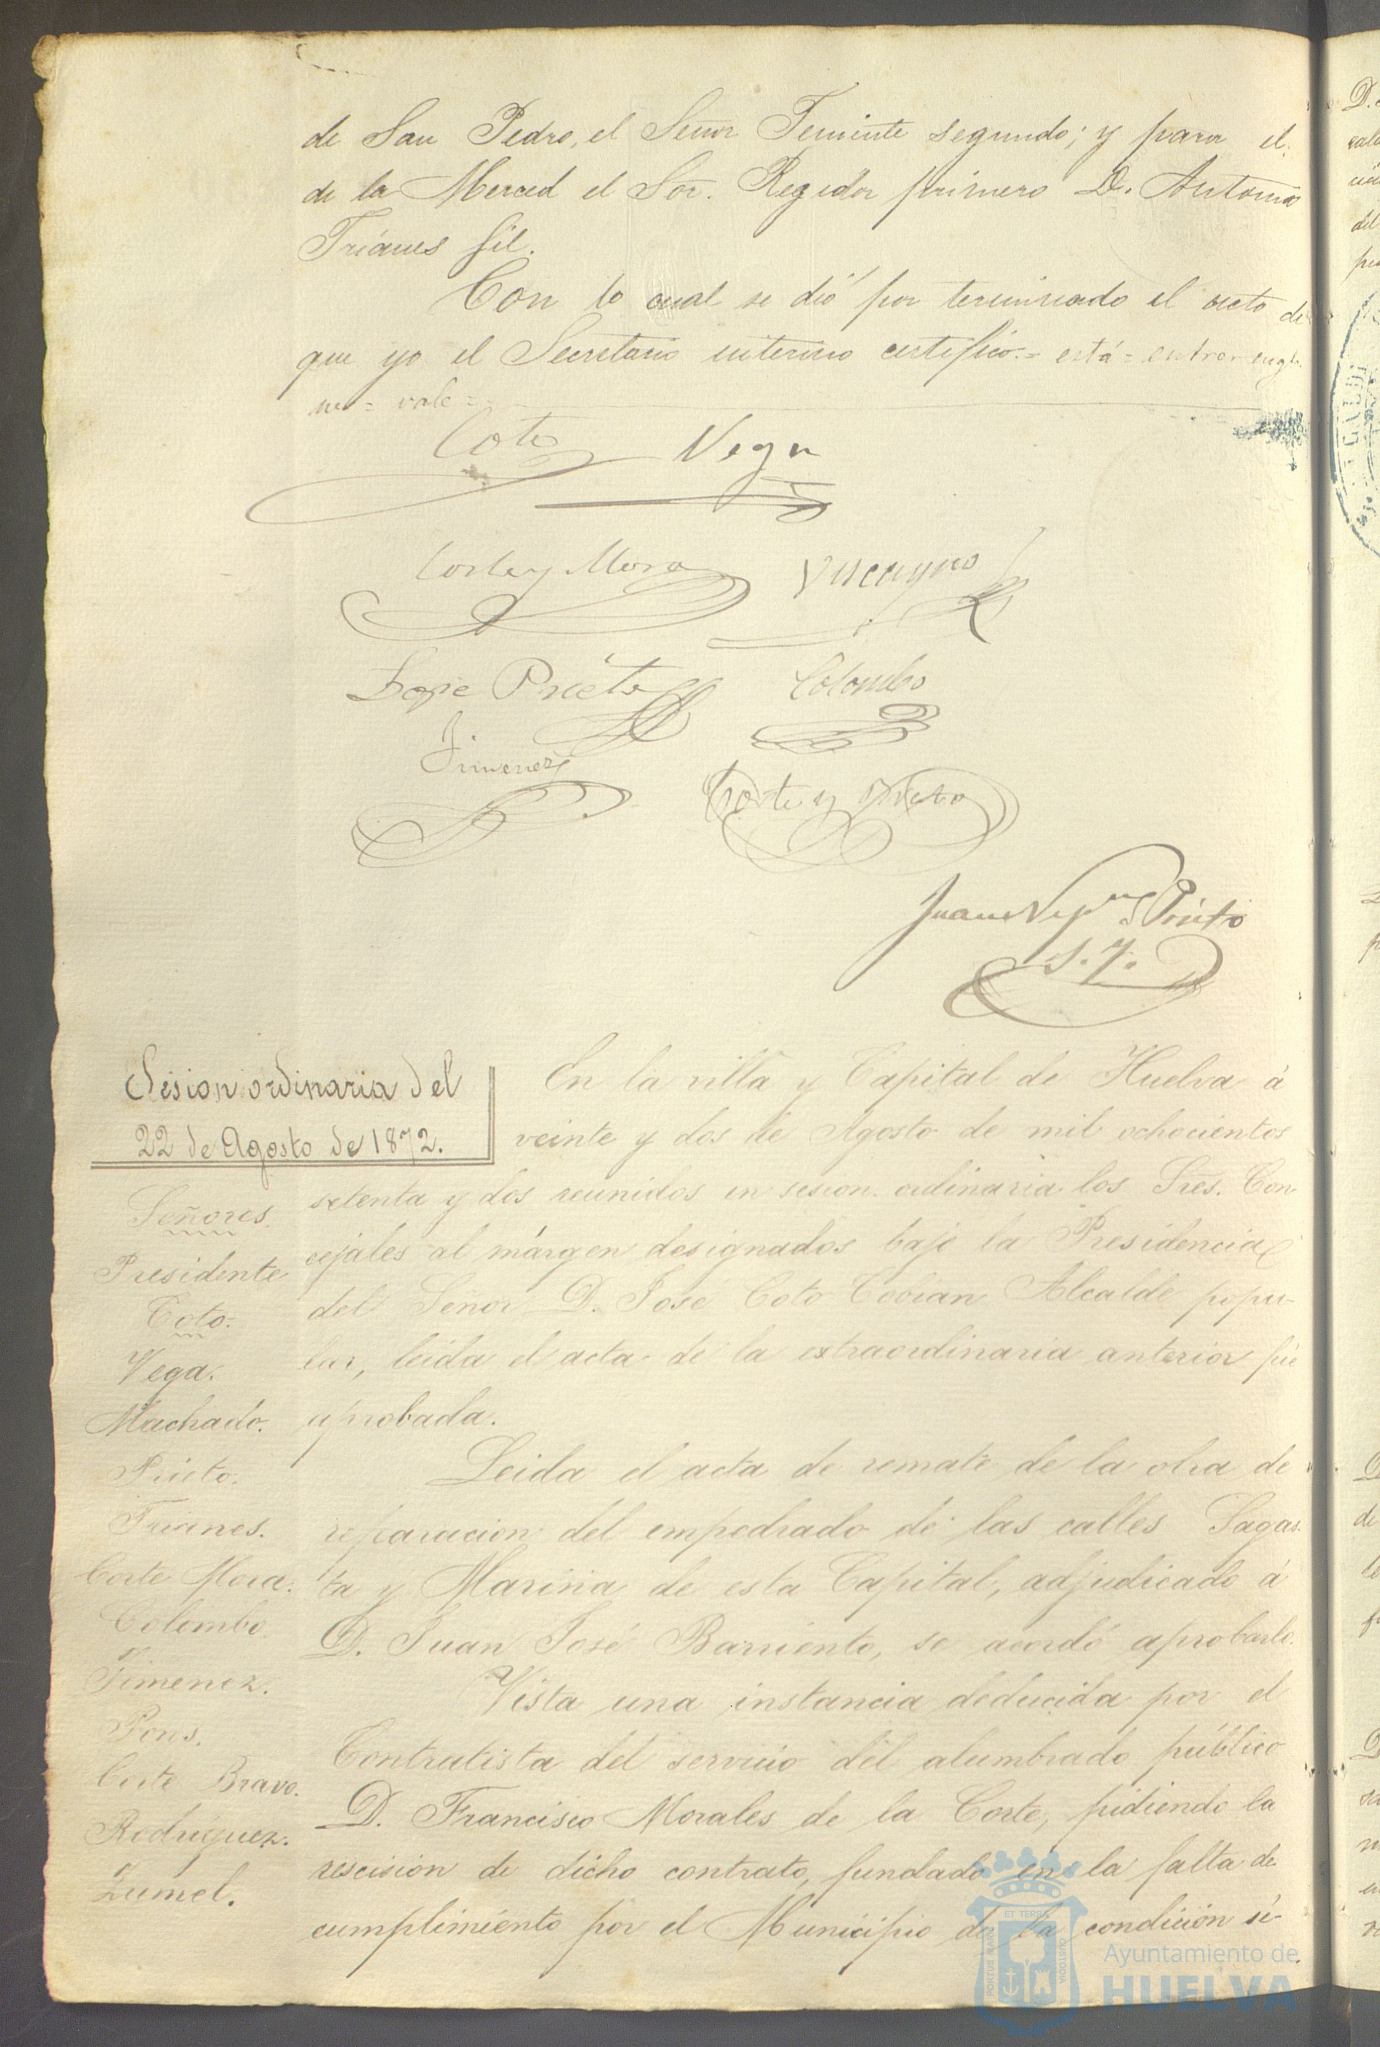 de San Pedro, el Señor Teniente segundo; y para el
de la Merced el Sor. Regidor primero D. Antonio
Trianes Gil.
Con lo cual se dió por terminado el acto de
que yo el Secretario interino certifico.= está = entrerenglo
nes = vale =
Coto Vega
Corte y Mora Viscayno
Lope Prieto Colombo
Jimenez Corte y
Juan Nepno Prieto
S. I.
Sesion ordinaria del
22 de Agosto de 1872.
Señores
Presidente
Coto.
Vega.
Machado.
Prieto.
Trianes.
Corte Mora.
Colombo
Jimenez.
Pons.
Corte Bravo.
Rodriguez.
Zumel.
En la villa y Capital de Huelva á
veinte y dos de Agosto de mil ochocientos
setenta y dos reunidos en sesion ordinaria los Sres. Con
cejales al márgen designados bajo la Presidencia
del Señor D. José Coto Cobian Alcalde popu-
lar, leida el acta de la extraordinaria anterior fué
aprobada.
Leida el acta de remate de la obra de
reparacion del empedrado de las calles Sagas-
ta y Marina de esta Capital, adjudicado á
D. Juan José Barriento, se acordó aprobarlo.
Vista una instancia deducida por el
Contratista del servicio del alumbrado público
D. Francisco Morales de la Corte, pidiendo la
rescision de dicho contrato, fundado en la falta de
cumplimiento por el Municipio de la condición si-
ET TERRÆ
PORTUS MARIS
CUSTODIA
Ayuntamiento de
HUELVA